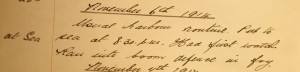 November 6th 1914
Usual Harbour routine. Put to
at Sea sea at 8.30 p.m. Had first watch.
Ran into boom defence in fog.
November 7th 1914